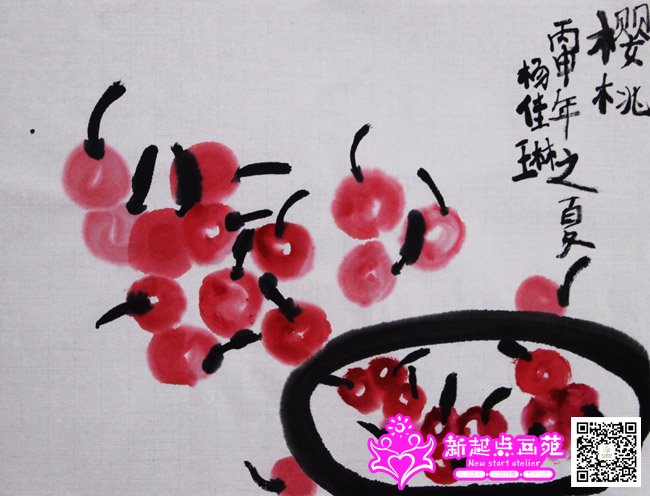 樱桃
丙申年之夏
杨佳琳
新起点画苑
New start atelier